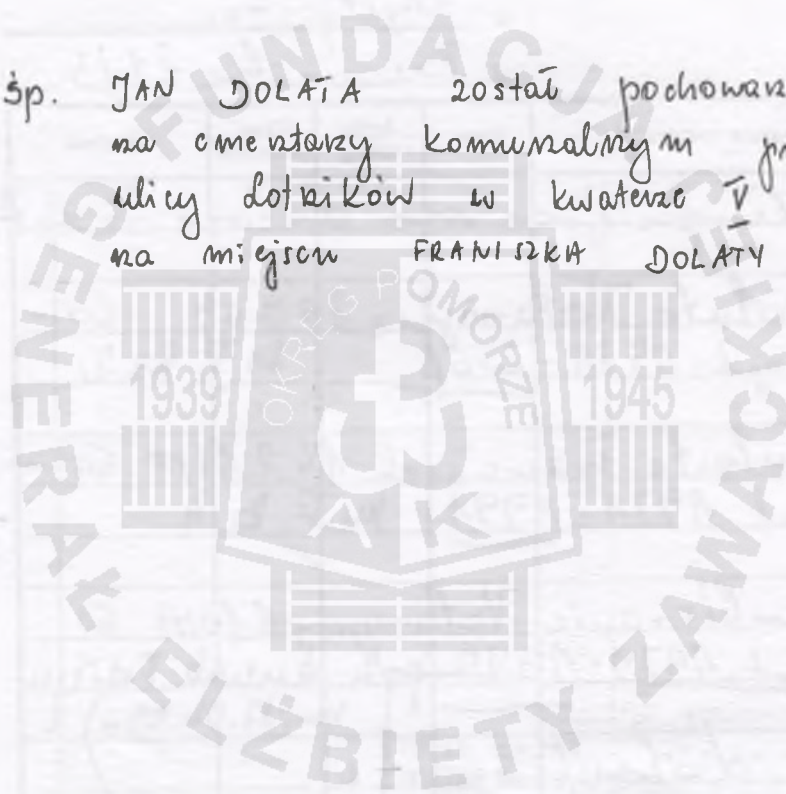 śp. JAN DOLATA został pochowan
na cmentarzy komunalnym pr
ulicy Lotników w kwaterze V
na miejscu FRANISZKA DOLATY
FUNDACJA GENERAŁ ELŻBIETY ZAWACKIEJ
OKRĘG POMORZE
1939 1945
AK